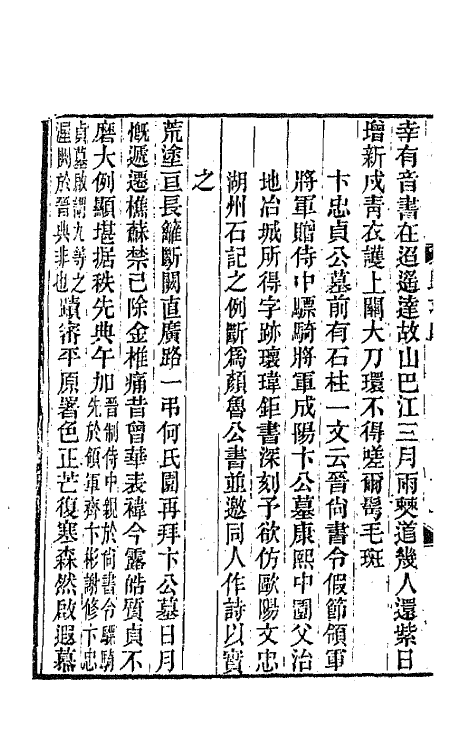 幸有音書在迢遙達故山巴江三月雨僰道幾人還紫日
增新戍靑衣護上關大刀環不得嗟爾鬢毛斑
卞忠貞公墓前有石柱一文云晉尙書令假節領軍
將軍贈侍中驃騎將軍成陽卞公墓康熙中園父治
地冶城所得字跡瓌瑋鉅書深刻予欲仿歐陽文忠
湖州石記之例斷爲顏魯公書並邀同人作詩以實
之
荒塗亘長籬斷闕直廣路一弔何氏園再拜卞公墓日月
慨遞遷樵蘇禁已除金椎痛昔曾華表褘今露皓質貞不
磨大例顯堪据秩先典午加晉制侍中親於尙書令驃騎先於領軍齊卞彬謝修卞忠
貞墓啟謂九等之渥闕於晉典非也蹟審平原署色正芒復塞森然啟遐慕